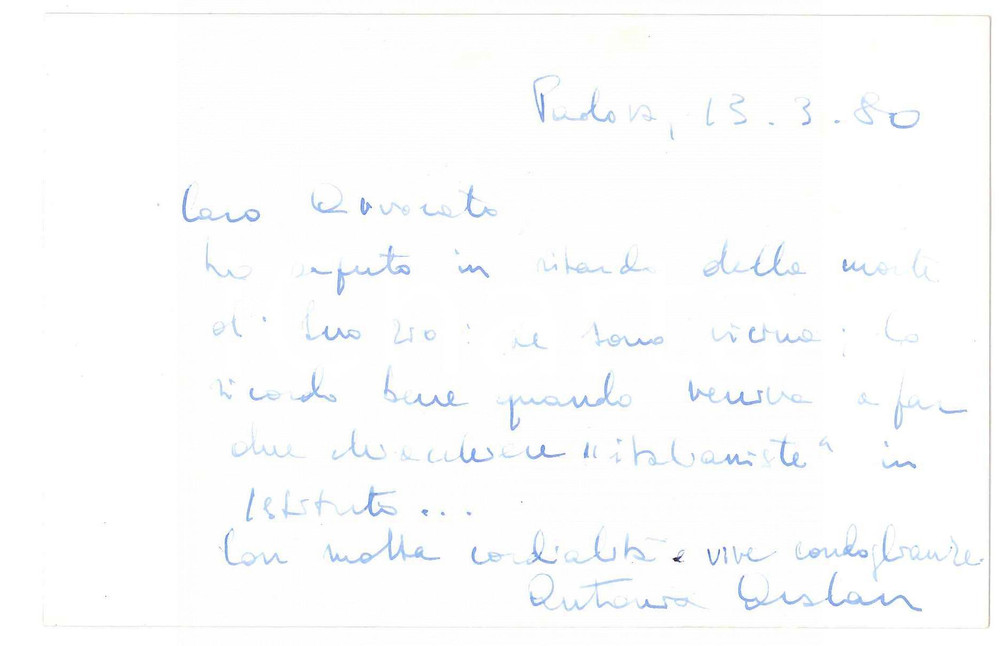 Padova, 13.3.80
Caro Avvocato
ho saputo in ritardo della morte
di Suo zio: le sono vicina; lo
ricordo bene quando veniva a far
due chiacchiere "italianiste" in
Istituto...
Con molta cordialità e vive condoglianze.
Antonia Arslan